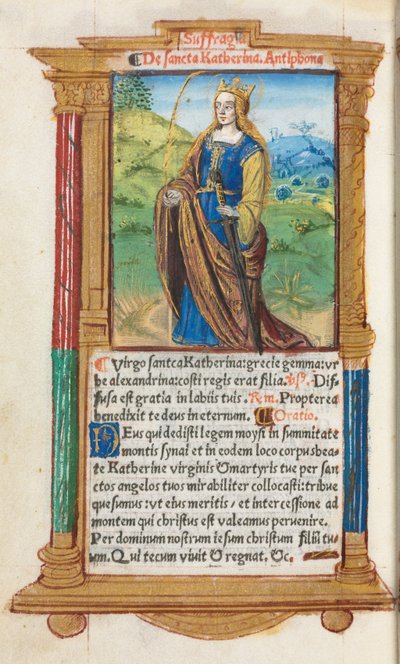 Suffragia
De sancta Katherina. Antiphona
Virgo santca Katherina: grecie gemma: vr
be alexandrina: costi regis erat filia. Vs. Dif
fusa est gratia in labiis tuis. Rem. Propterea
benedixit te deus in eternum. Oratio.
DEus qui dedisti legem moysi in summitate
montis synai et in eodem loco corpus bea-
te Katherine virginis & martyris tue per san
ctos angelos tuos mirabiliter collocasti: tribue
quesumus: vt eius meritis, et intercessione ad
montem qui christus est valeamus peruenire.
Per dominum nostrum iesum christum filiū tu-
um. Qui tecum viuit & regnat. &c.